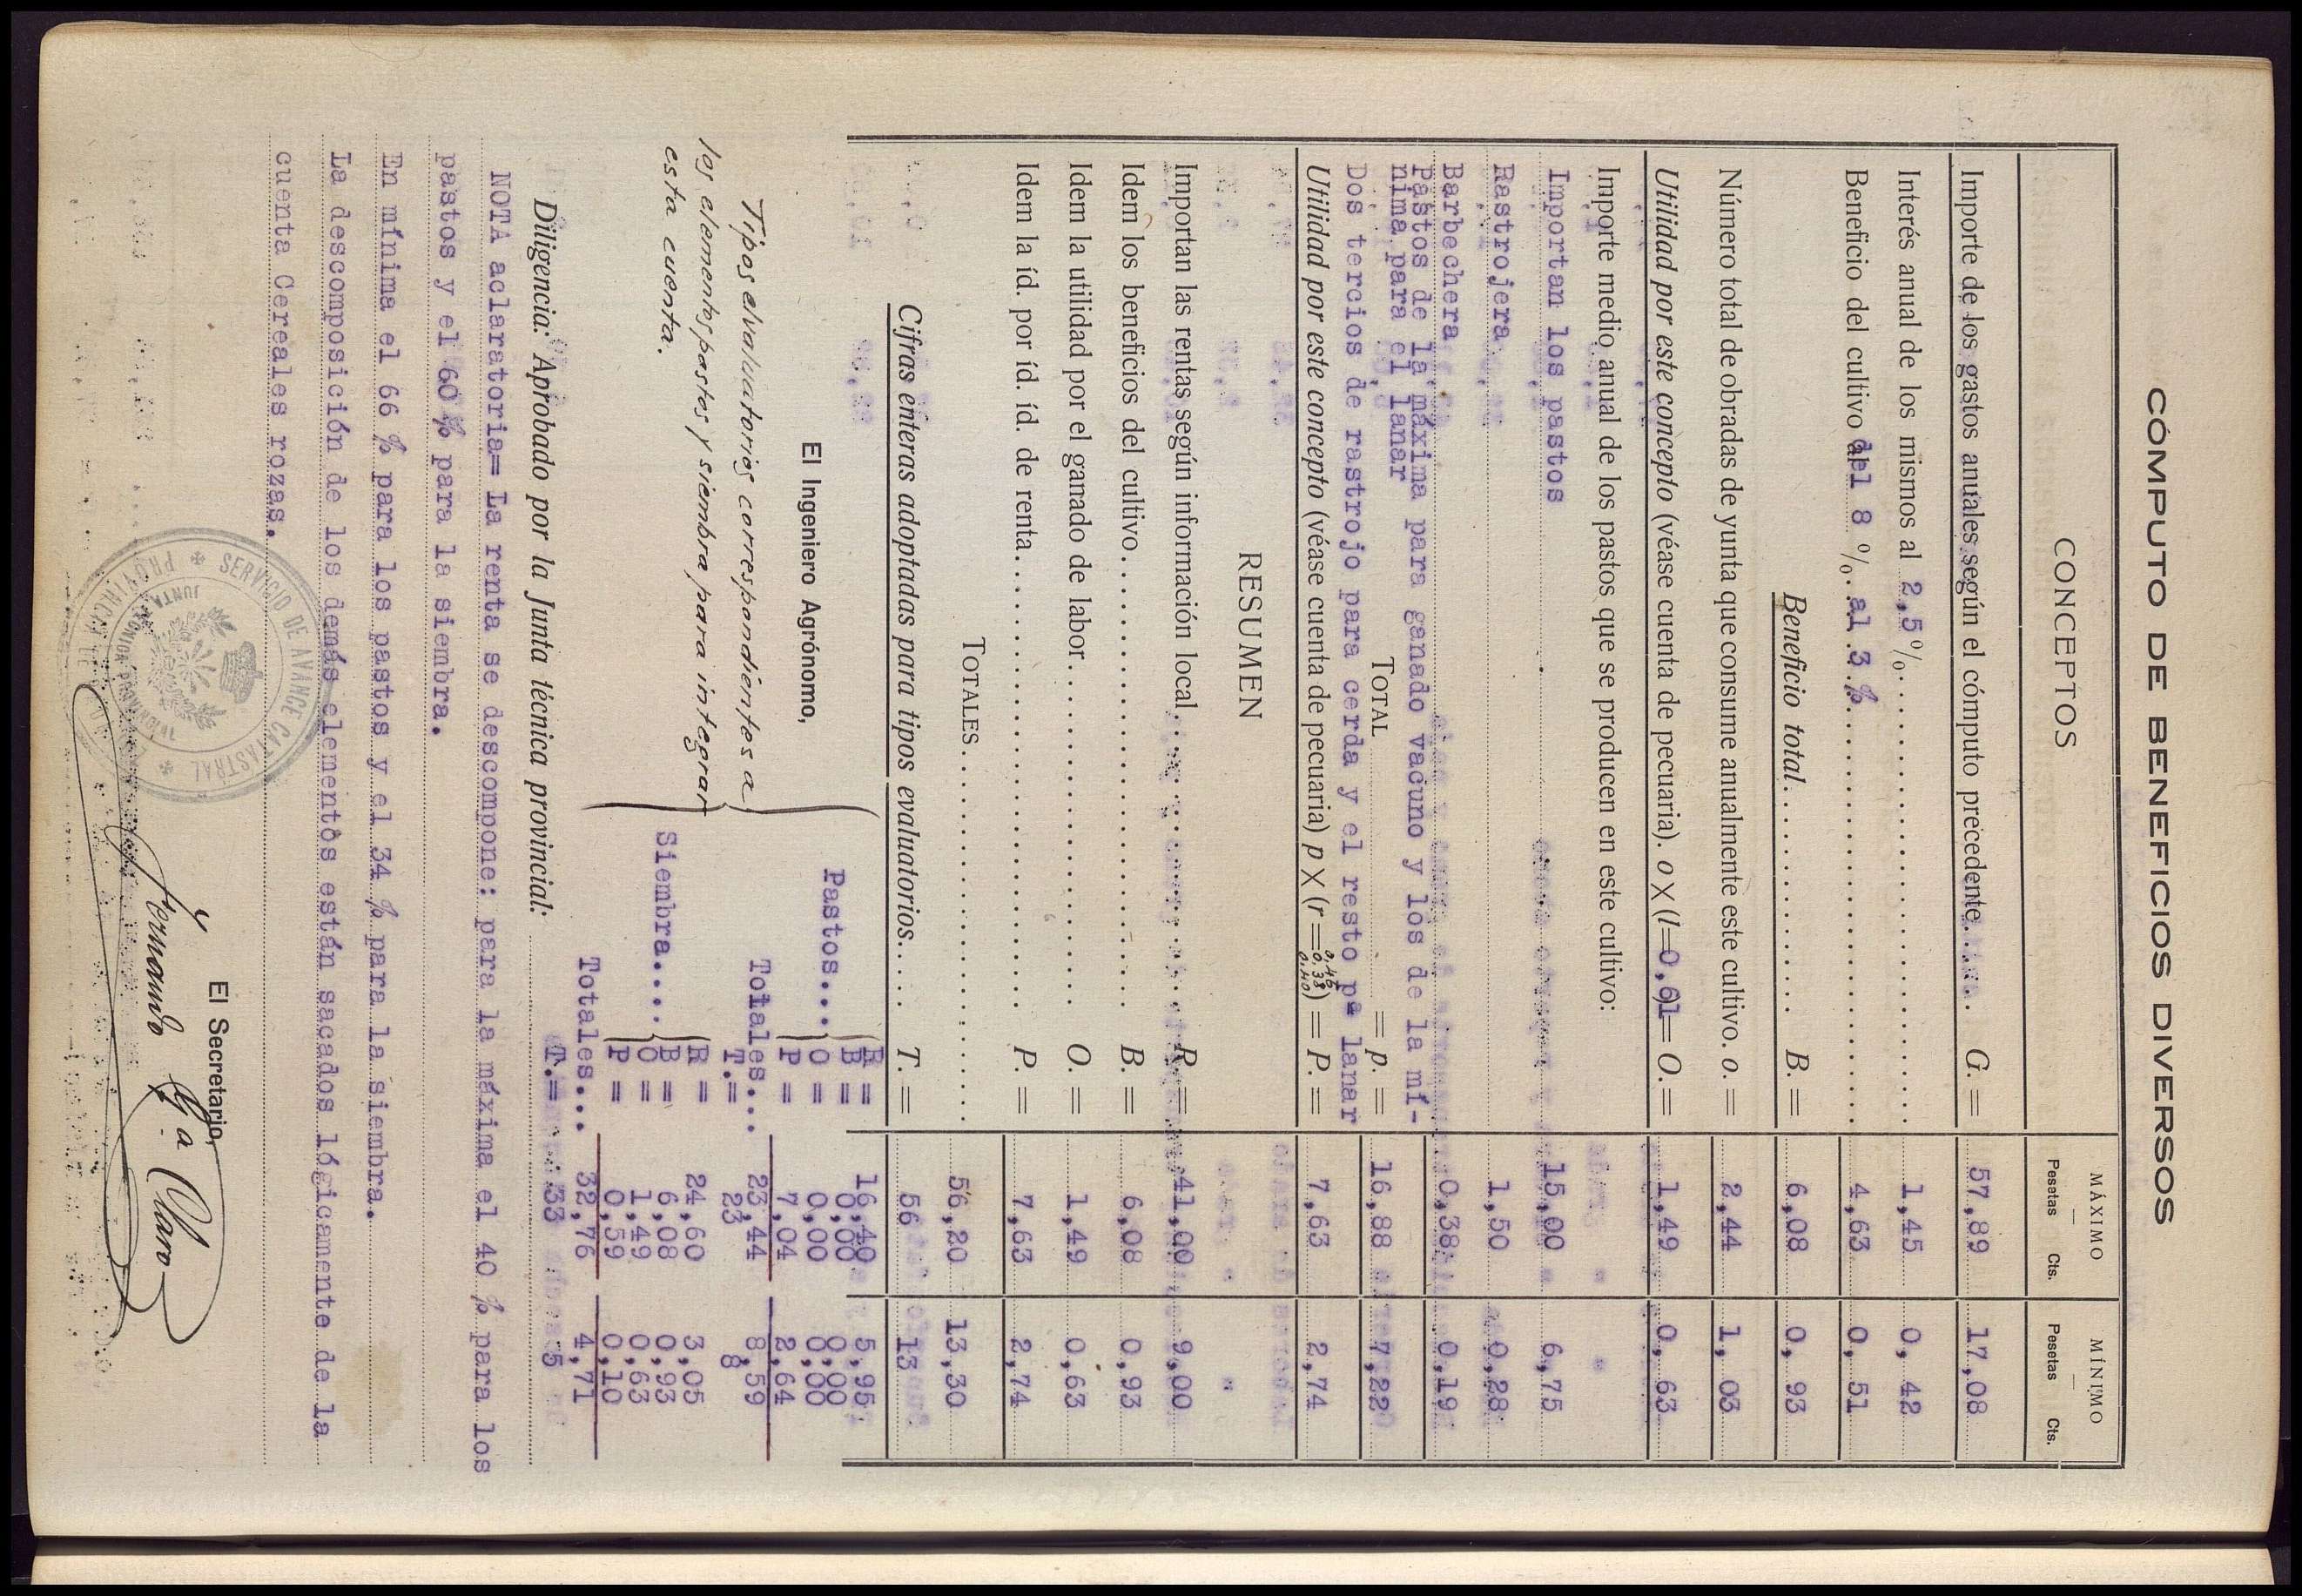 CÓMPUTO DE BENEFICIOS DIVERSOS
CONCEPTOS
MÁXIMO
Pesetas Cts.
MÍNIMO
Pesetas Cts.
Importe de los gastos anuales según el cómputo precedente..... G. = 57,89 17,08
Interés anual de los mismos al 2,5 %. 1,45 0, 42
Beneficio del cultivo del 8 %. al 3 % 4,63 0, 51
Beneficio total. B. = 6,08 0, 93
Número total de obradas de yunta que consume anualmente este cultivo. o. = 2,44 1, 03
Utilidad por este concepto (véase cuenta de pecuaria). o × (l=0,61= O. = 1,49 0, 63
Importe medio anual de los pastos que se producen en este cultivo:
Importan los pastos 15,00 6,75
Rastrojera 1,50 0,28
Barbechera 0,38 0,19
Pastos de la máxima para ganado vacuno y los de la mí-
nima para el lanar
TOTAL = p. = 16,88 7,22
Dos tercios de rastrojo para cerda y el resto pª lanar
Utilidad por este concepto (véase cuenta de pecuaria) p × (r = 0,46 0,38 0,40) = P. = 7,63 2,74
RESUMEN
Importan las rentas según información local R. = 41,00 9,00
Idem los beneficios del cultivo. B. = 6,08 0,93
Idem la utilidad por el ganado de labor. O. = 1,49 0,63
Idem la íd. por íd. íd. de renta. P. = 7,63 2,74
TOTALES. 56,20 13,30
Cifras enteras adoptadas para tipos evaluatorios. T. = 56 13
El Ingeniero Agrónomo,
Tipos elvaluatorios correspondientes a
los elementos, pastos y siembra para integrar
esta cuenta.
Pastos...
R = 16,40 5,95
B = 0,00 0,00
O = 0,00 0,00
P = 7,04 2,64
Totales... 23,44 8,59
T.= 23 8
Siembra....
R = 24,60 3,05
B = 6,08 0,93
O = 1,49 0,63
P = 0,59 0,10
Totales... 32,76 4,71
T.= 33 5
Diligencia: Aprobado por la Junta técnica provincial:
NOTA aclaratoria= La renta se descompone: para la máxima el 40 % para los
pastos y el 60 % para la siembra.
En mínima el 66 % para los pastos y el 34 % para la siembra.
La descomposición de los demás elementos están sacados lógicamente de la
cuenta Cereales rozas.
SERVICIO DE AVANCE CATASTRAL
JUNTA TÉCNICA PROVINCIAL
El Secretario,
Fernando Gª Claro